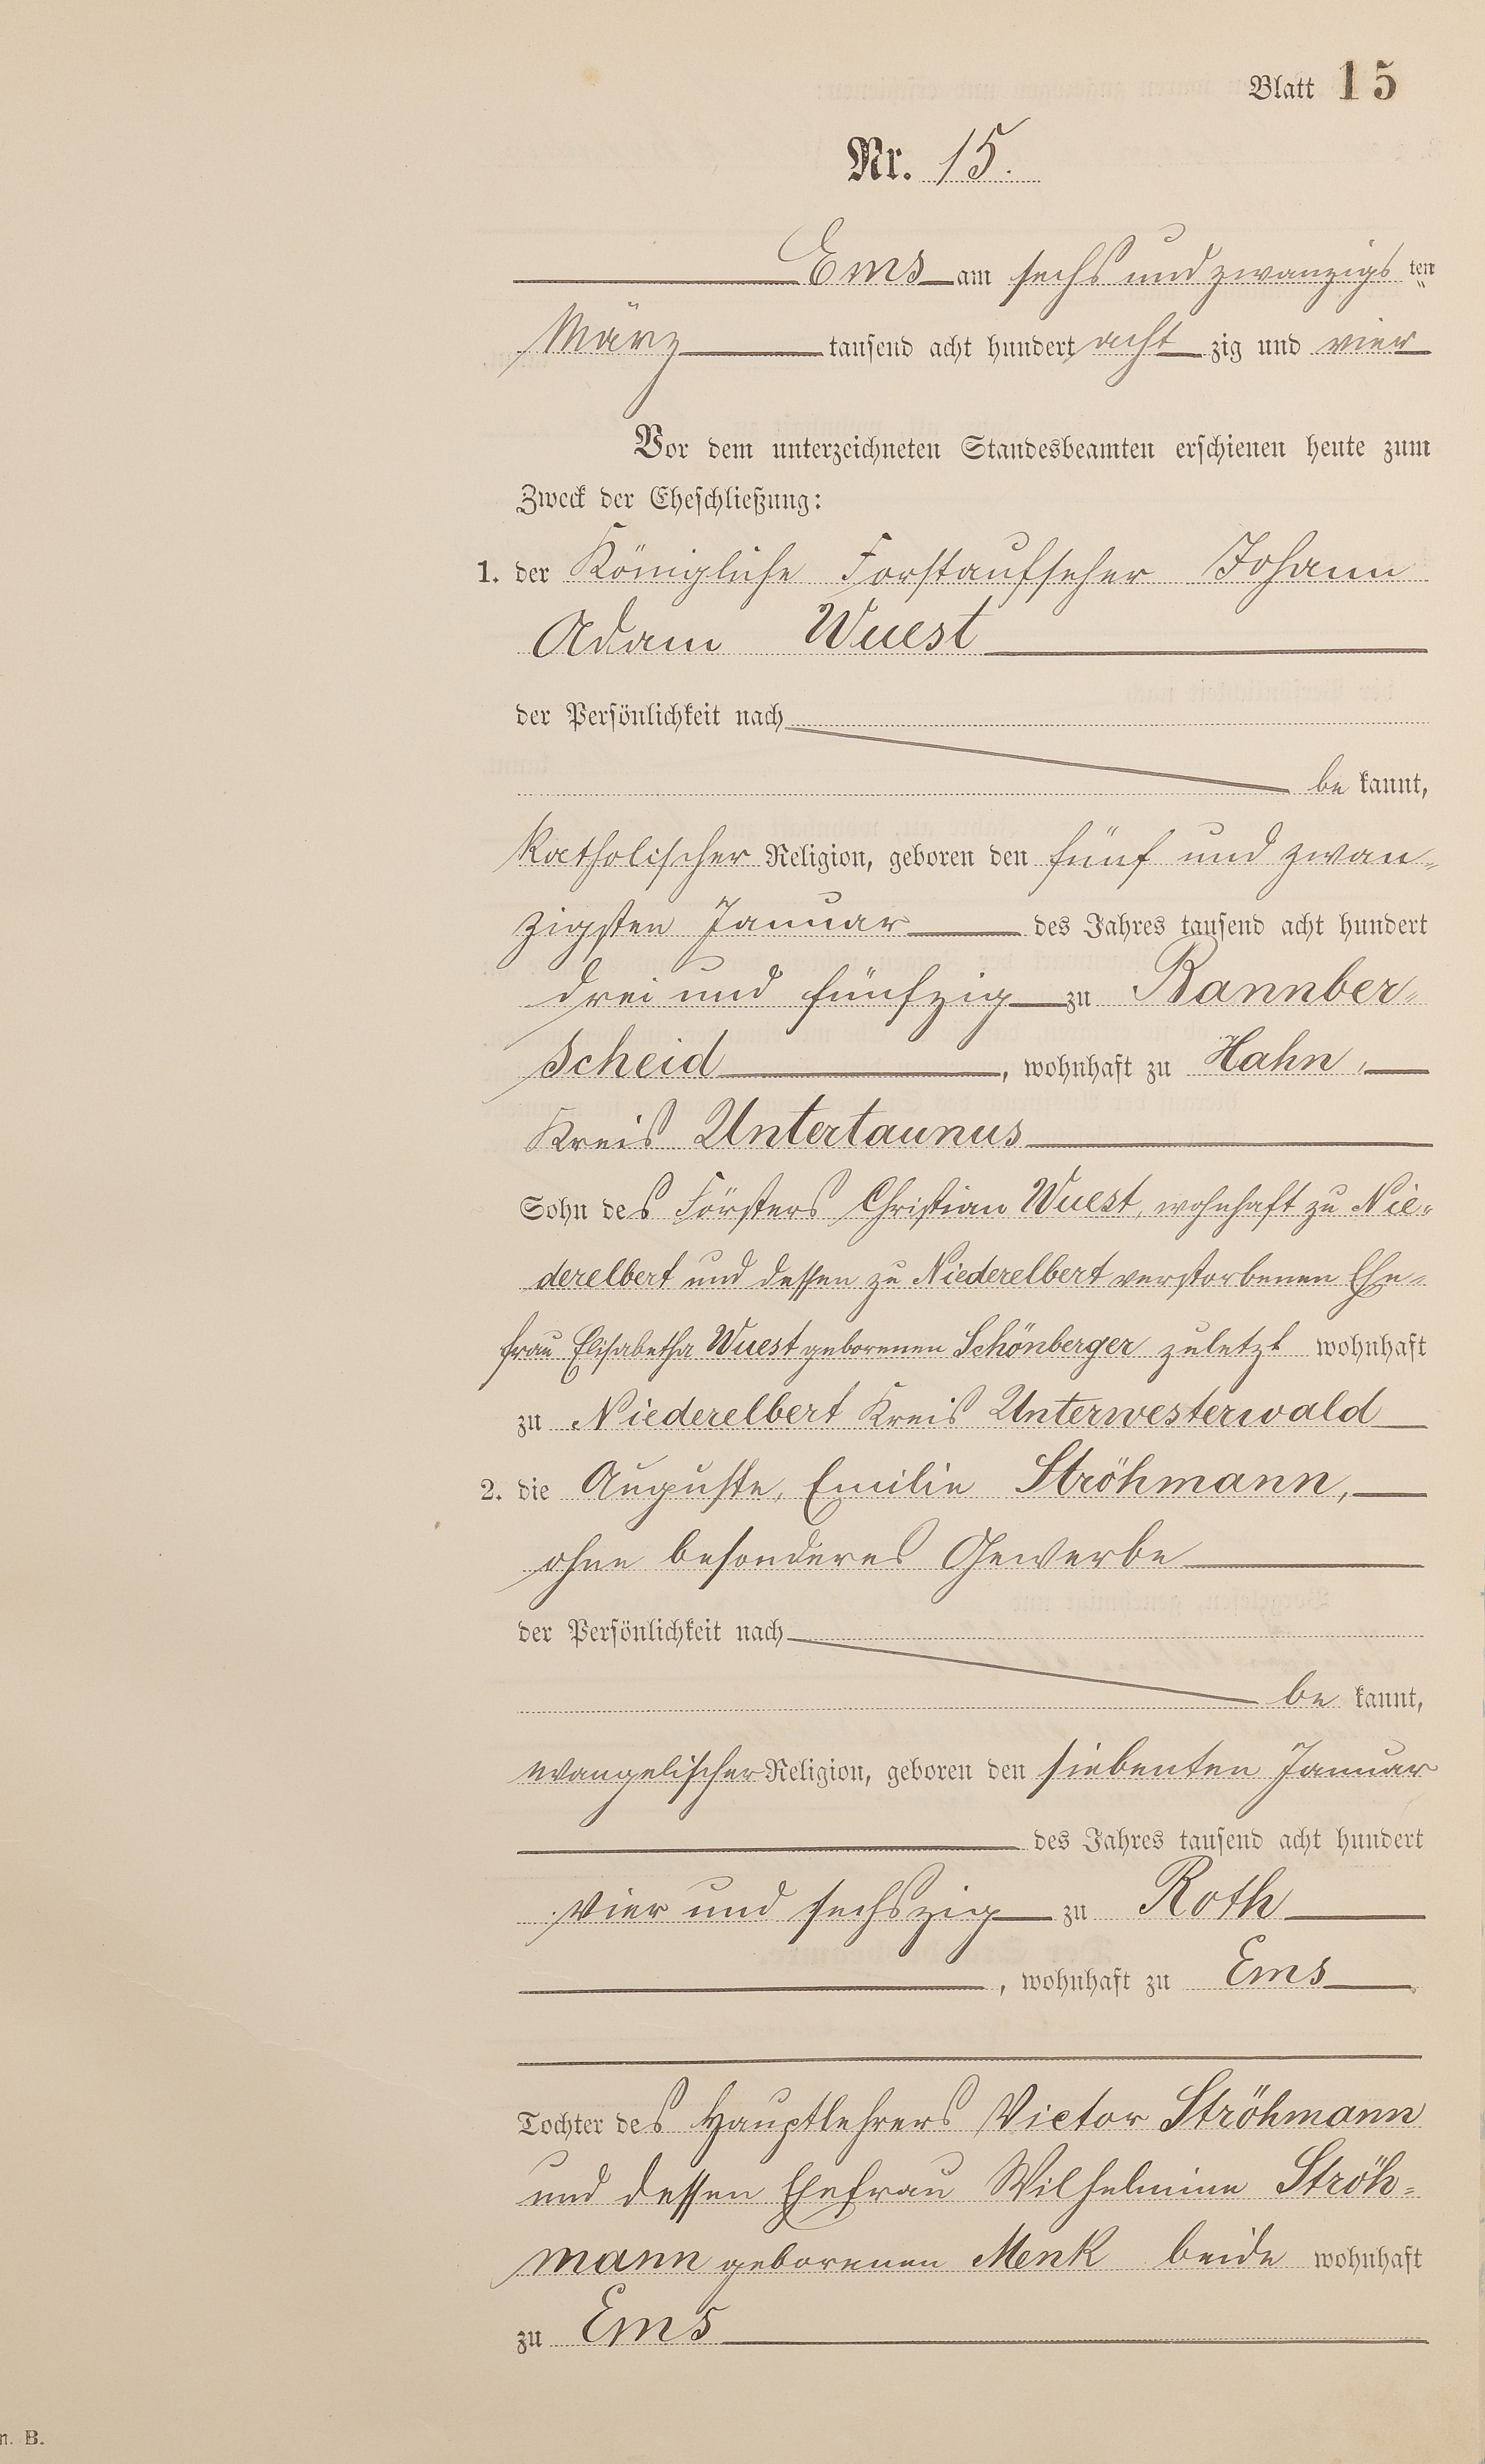 Blatt 15
Nr. 15.
Ems am sechs und zwanzigs ten
März tausend acht hundert acht zig und vier
Vor dem unterzeichneten Standesbeamten erschienen heute zum
Zweck der Eheschließung:
1. der Königliche Forstaufseher Johann
Adam Wuest
der Persönlichkeit nach
be kannt,
katholischer Religion, geboren den fünf und zwan-
zigsten Januar des Jahres tausend acht hundert
drei und fünfzig zu Bannber-
scheid, wohnhaft zu Hahn,
Kreis Untertaunus
Sohn des Försters Christian Wuest, wohnhaft zu Nie-
derelbert und dessen zu Niederelbert verstorbenen Ehe-
frau Elisabetha Wuest geborenen Schönberger zuletzt wohnhaft
zu Niederelbert Kreis Unterwesterwald
2. die Auguste, Emilie Ströhmann,
ohne besonderes Gewerbe
der Persönlichkeit nach
be kannt,
evangelischer Religion, geboren den siebenten Januar
des Jahres tausend acht hundert
vier und sechszig zu Roth
, wohnhaft zu Ems
Tochter des Hauptlehrers Victor Ströhmann
und dessen Ehefrau Wilhelmine Ströh-
mann geborenen Menk beide wohnhaft
zu Ems
B.